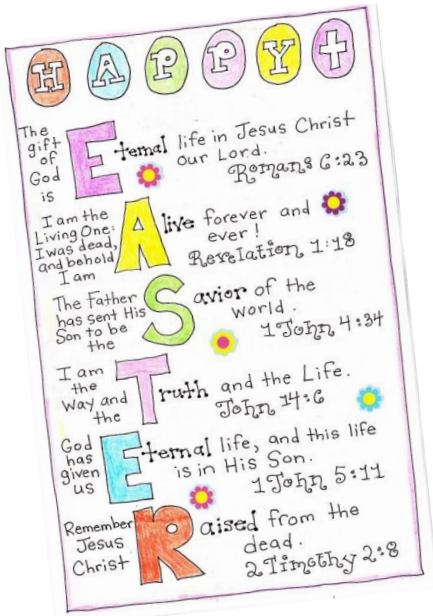 HAPPY
The gift of God is Eternal life in Jesus Christ
our Lord.
Romans 6:23
I am the Living One: I was dead, and behold I am Alive forever and
ever!
Revelation 1:18
The Father has sent His Son to be the Savior of the
world.
1 John 4:34
I am the Way and the Truth and the Life.
John 14:6
God has given us Eternal life, and this life
is in His Son.
1 John 5:11
Remember Jesus Christ Raised from the
dead.
2 Timothy 2:8